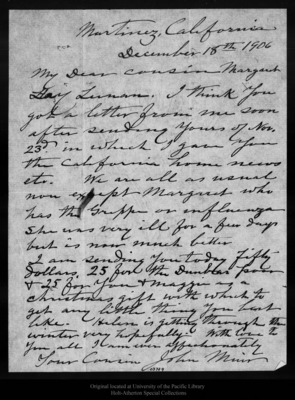 Martinez, California
December 18th 1906
My Dear cousin Margaret
Hay Lunam. I think you
got a letter from me soon
after sending yours of Nov.
23d in which I gave you
the California home news
etc. We are all as usual
now except Margaret who
has the Grippe or influenza
She was very ill for a few days
but is now much better
I am sending you today fifty
dollars, 25 for the Dunbar poor
& 25 for you & Maggie as a
Christmas gift with which to
get any little thing you best
like. Helen is getting through the
winter very hopefully. With love to
you all I am ever affectionately
Your Cousin John Muir
Original located at University of the Pacific Library
Holt-Atherton Special Collections